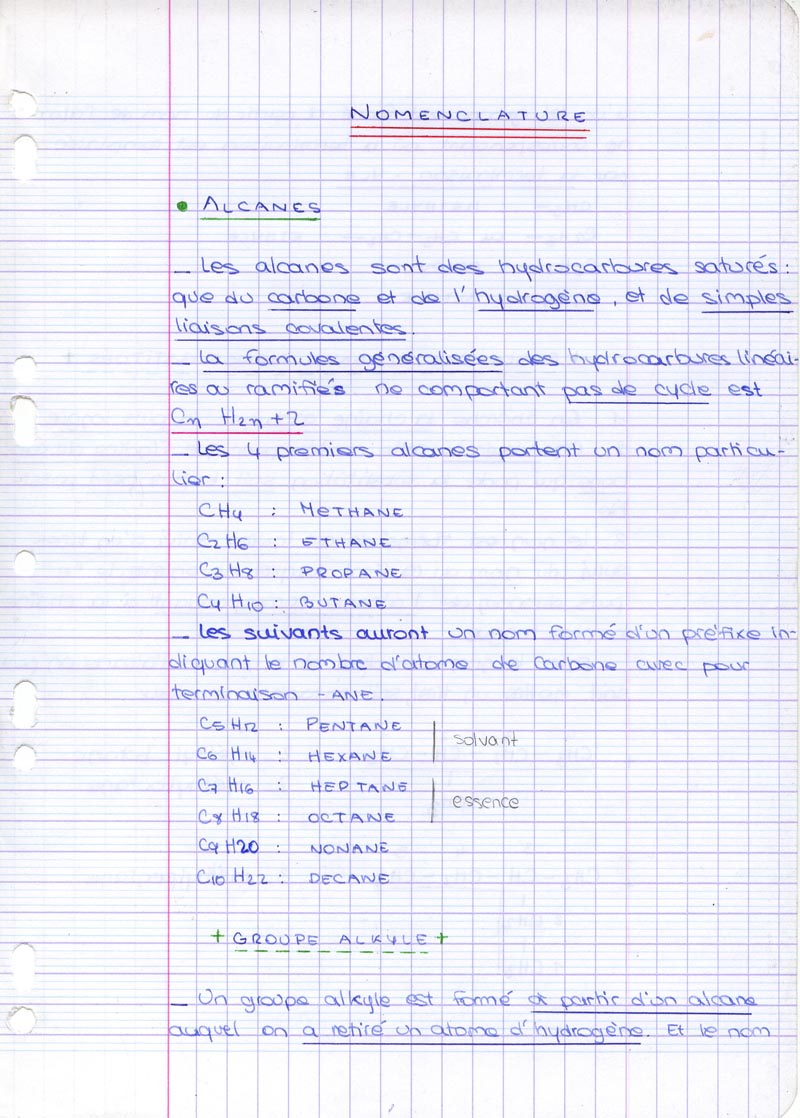 NOMENCLATURE
• ALCANES
_ Les alcanes sont des hydrocarbures saturés :
que du carbone et de l'hydrogène, et de simples
liaisons covalentes.
_ La formules généralisées des hydrocarbures linéai-
res ou ramifiés ne comportant pas de cycle est
Cn H2n+2
_ Les 4 premiers alcanes portent un nom particu-
lier :
CH4 : METHANE
C2H6 : ETHANE
C3H8 : PROPANE
C4H10 : BUTANE
_ Les suivants auront un nom formé d'un préfixe in-
diquant le nombre d'atome de carbone avec pour
terminaison -ANE.
C5H12 : PENTANE
solvant
C6H14 : HEXANE
C7H16 : HEPTANE
essence
C8H18 : OCTANE
C9H20 : NONANE
C10H22 : DECANE
+ GROUPE ALKYLE +
_ Un groupe alkyle est formé à partir d'un alcane
auquel on a retiré un atome d'hydrogène. Et le nom